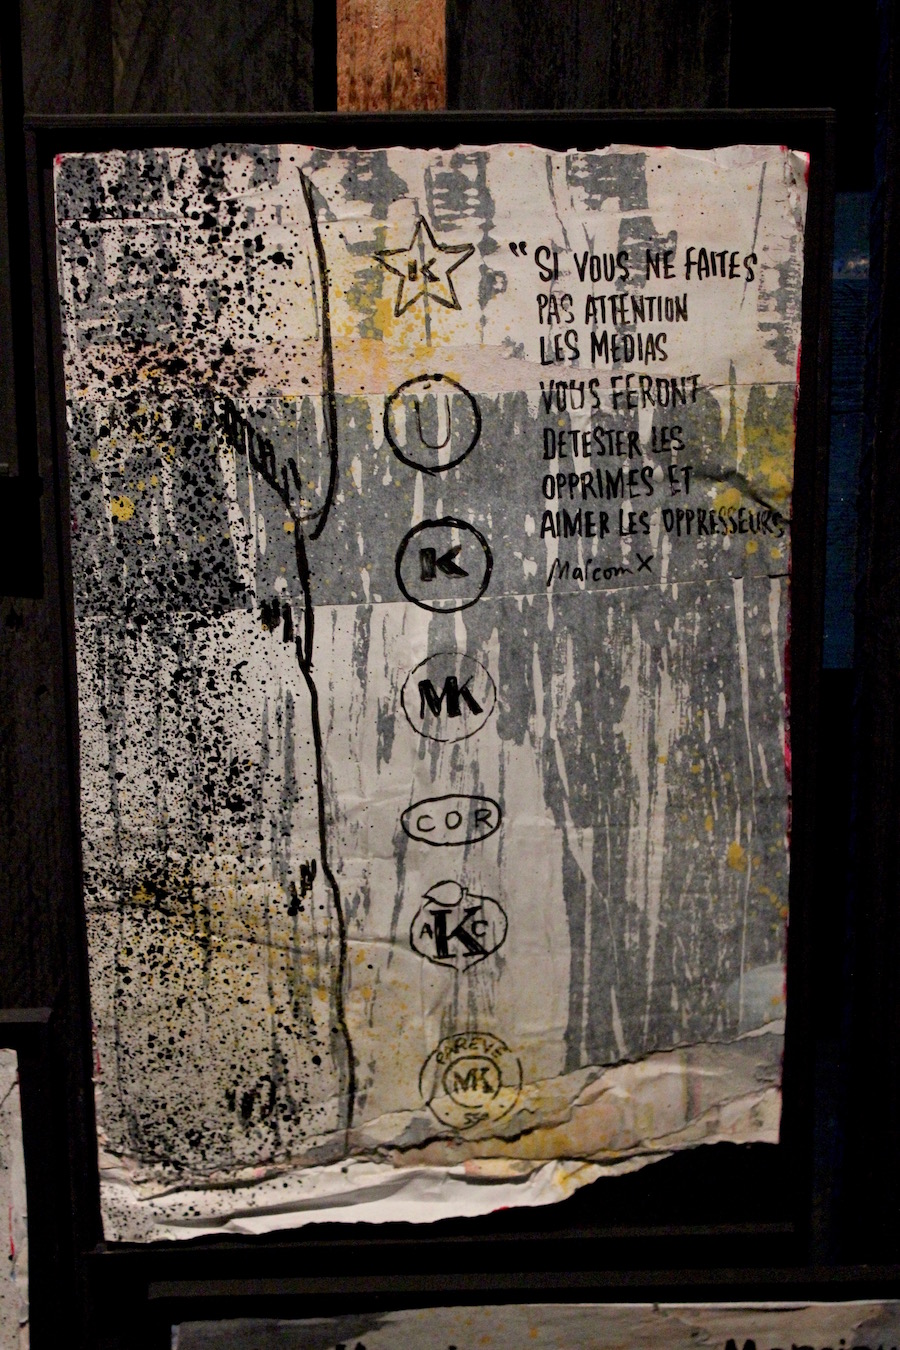 K
U
K
MK
COR
A K C
PAREVE
MK
“SI VOUS NE FAITES
PAS ATTENTION
LES MEDIAS
VOUS FERONT
DETESTER LES
OPPRIMES ET
AIMER LES OPPRESSEURS
Malcom X